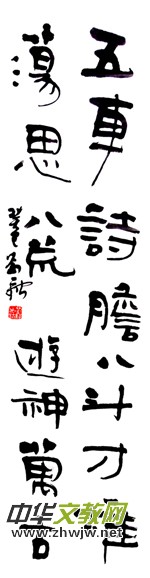 五車詩膽八斗才雄
蕩思八荒遊神萬古
中华文教网
http://www.zhwjw.net